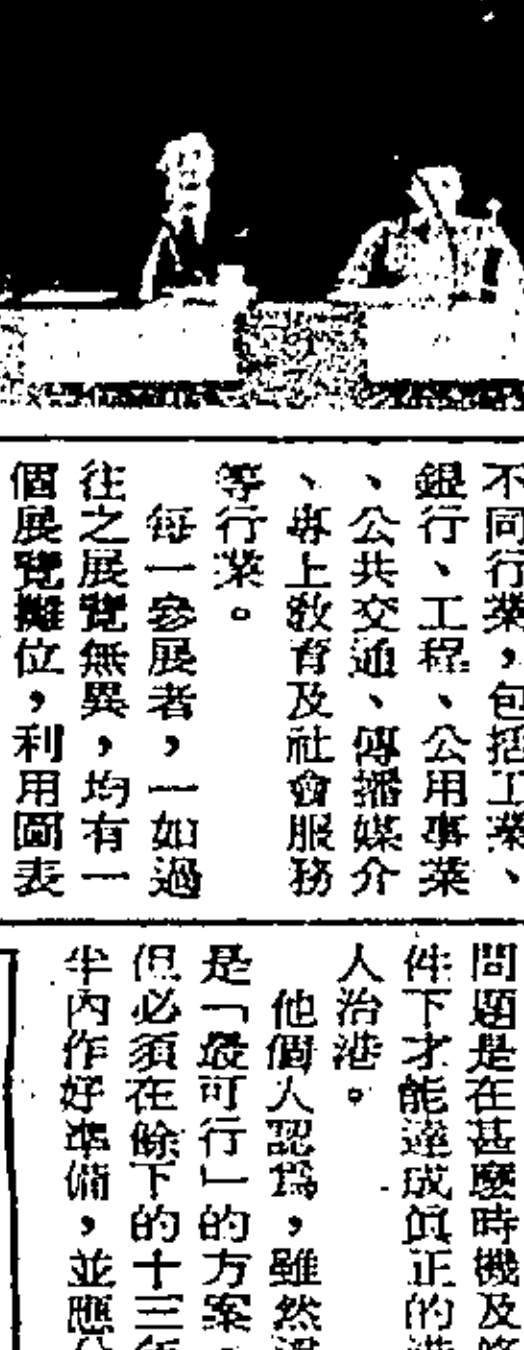 不同行業，包括工業、
銀行、工程、公用事業
、公共交通、傳播媒介
、專上教育及社會服務
等行業。
每一參展者，一如過
往之展覽無異，均有一
個展覽攤位，利用圖表
問題是在甚麼時機及條
件下才能達成眞正的港
人治港。
他個人認爲，雖然港
是「最可行」的方案，
但必須在餘下的十三年
半內作好準備，並應